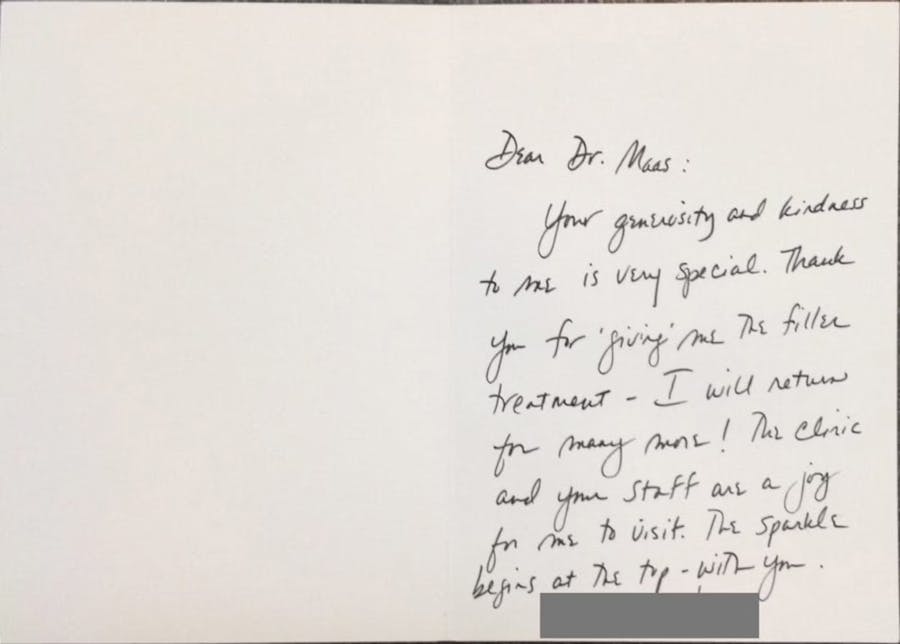 Dear Dr. Maas:
Your generosity and kindness
to me is very special. Thank
you for 'giving' me the filler
treatment - I will return
for many more! The clinic
and your staff are a joy
for me to visit. The sparkle
begins at the top - with you.